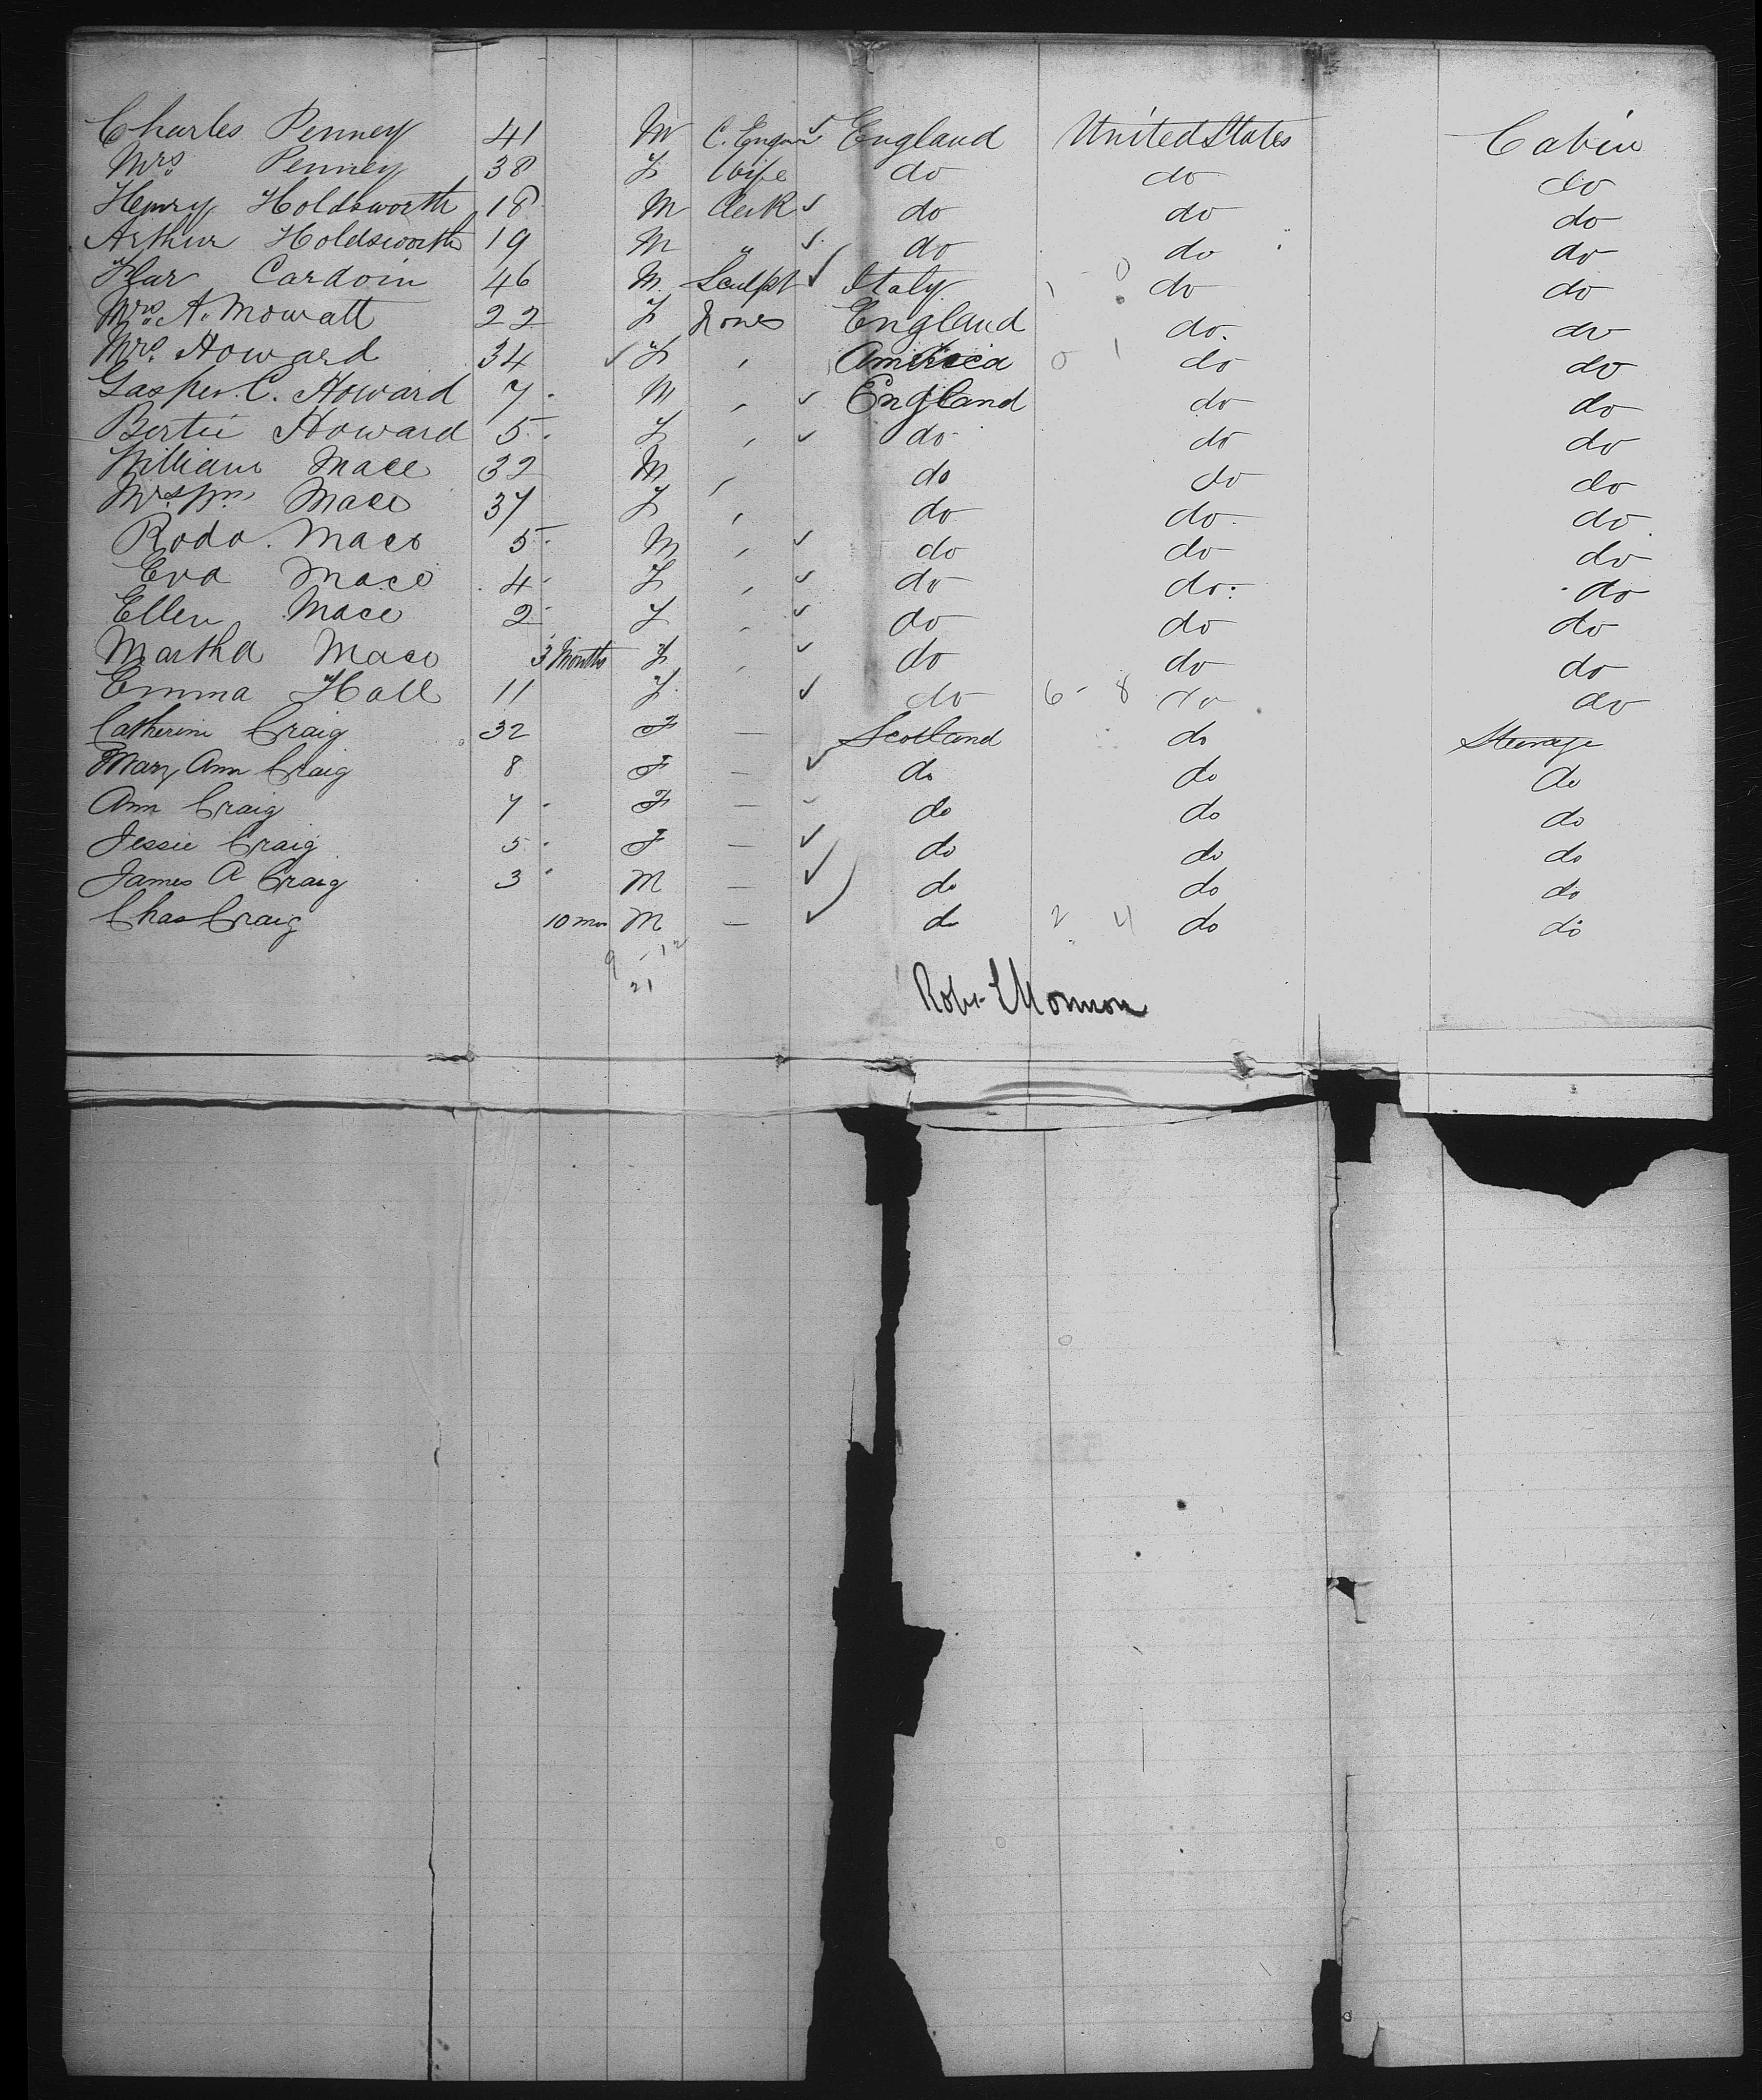 Charles Penney 41 M C. Engin England United States Cabin
Mrs Penney 38 F Wife do do do
Henry Holdsworth 18 M Clerk do do do
Arthur Holdsworth 19 M " do do do
Cardoin 46 M Sculpt Italy 1 - 0 do do
Mrs. A. Mowatt 22 F Nones England do. do
Mrs. Howard 34 F , America 0 1 do do
Gasper C. Howard 7 M , England do do
Bertie Howard 5 F , do do do
William Mace 32 M , do do do
Mrs Wm Mace 37 F , do do do
Rodo. Mace 5 M , do do do
Eva Mace 4 F , do do do
Ellen Mace 2 F , do do do
Martha Mace 3 Months F , do do do
Emma Hall 11 F do 6 - 8 do do
Catherine Craig 32 F — Scotland do Steerage
Mary Ann Craig 8 F — do do do
Ann Craig 7 F — do do do
Jessie Craig 5 F — do do do
James A Craig 3 M — do do do
Chas Craig 10 mos M — do 2 4 do do
9 - 12
21
Robt